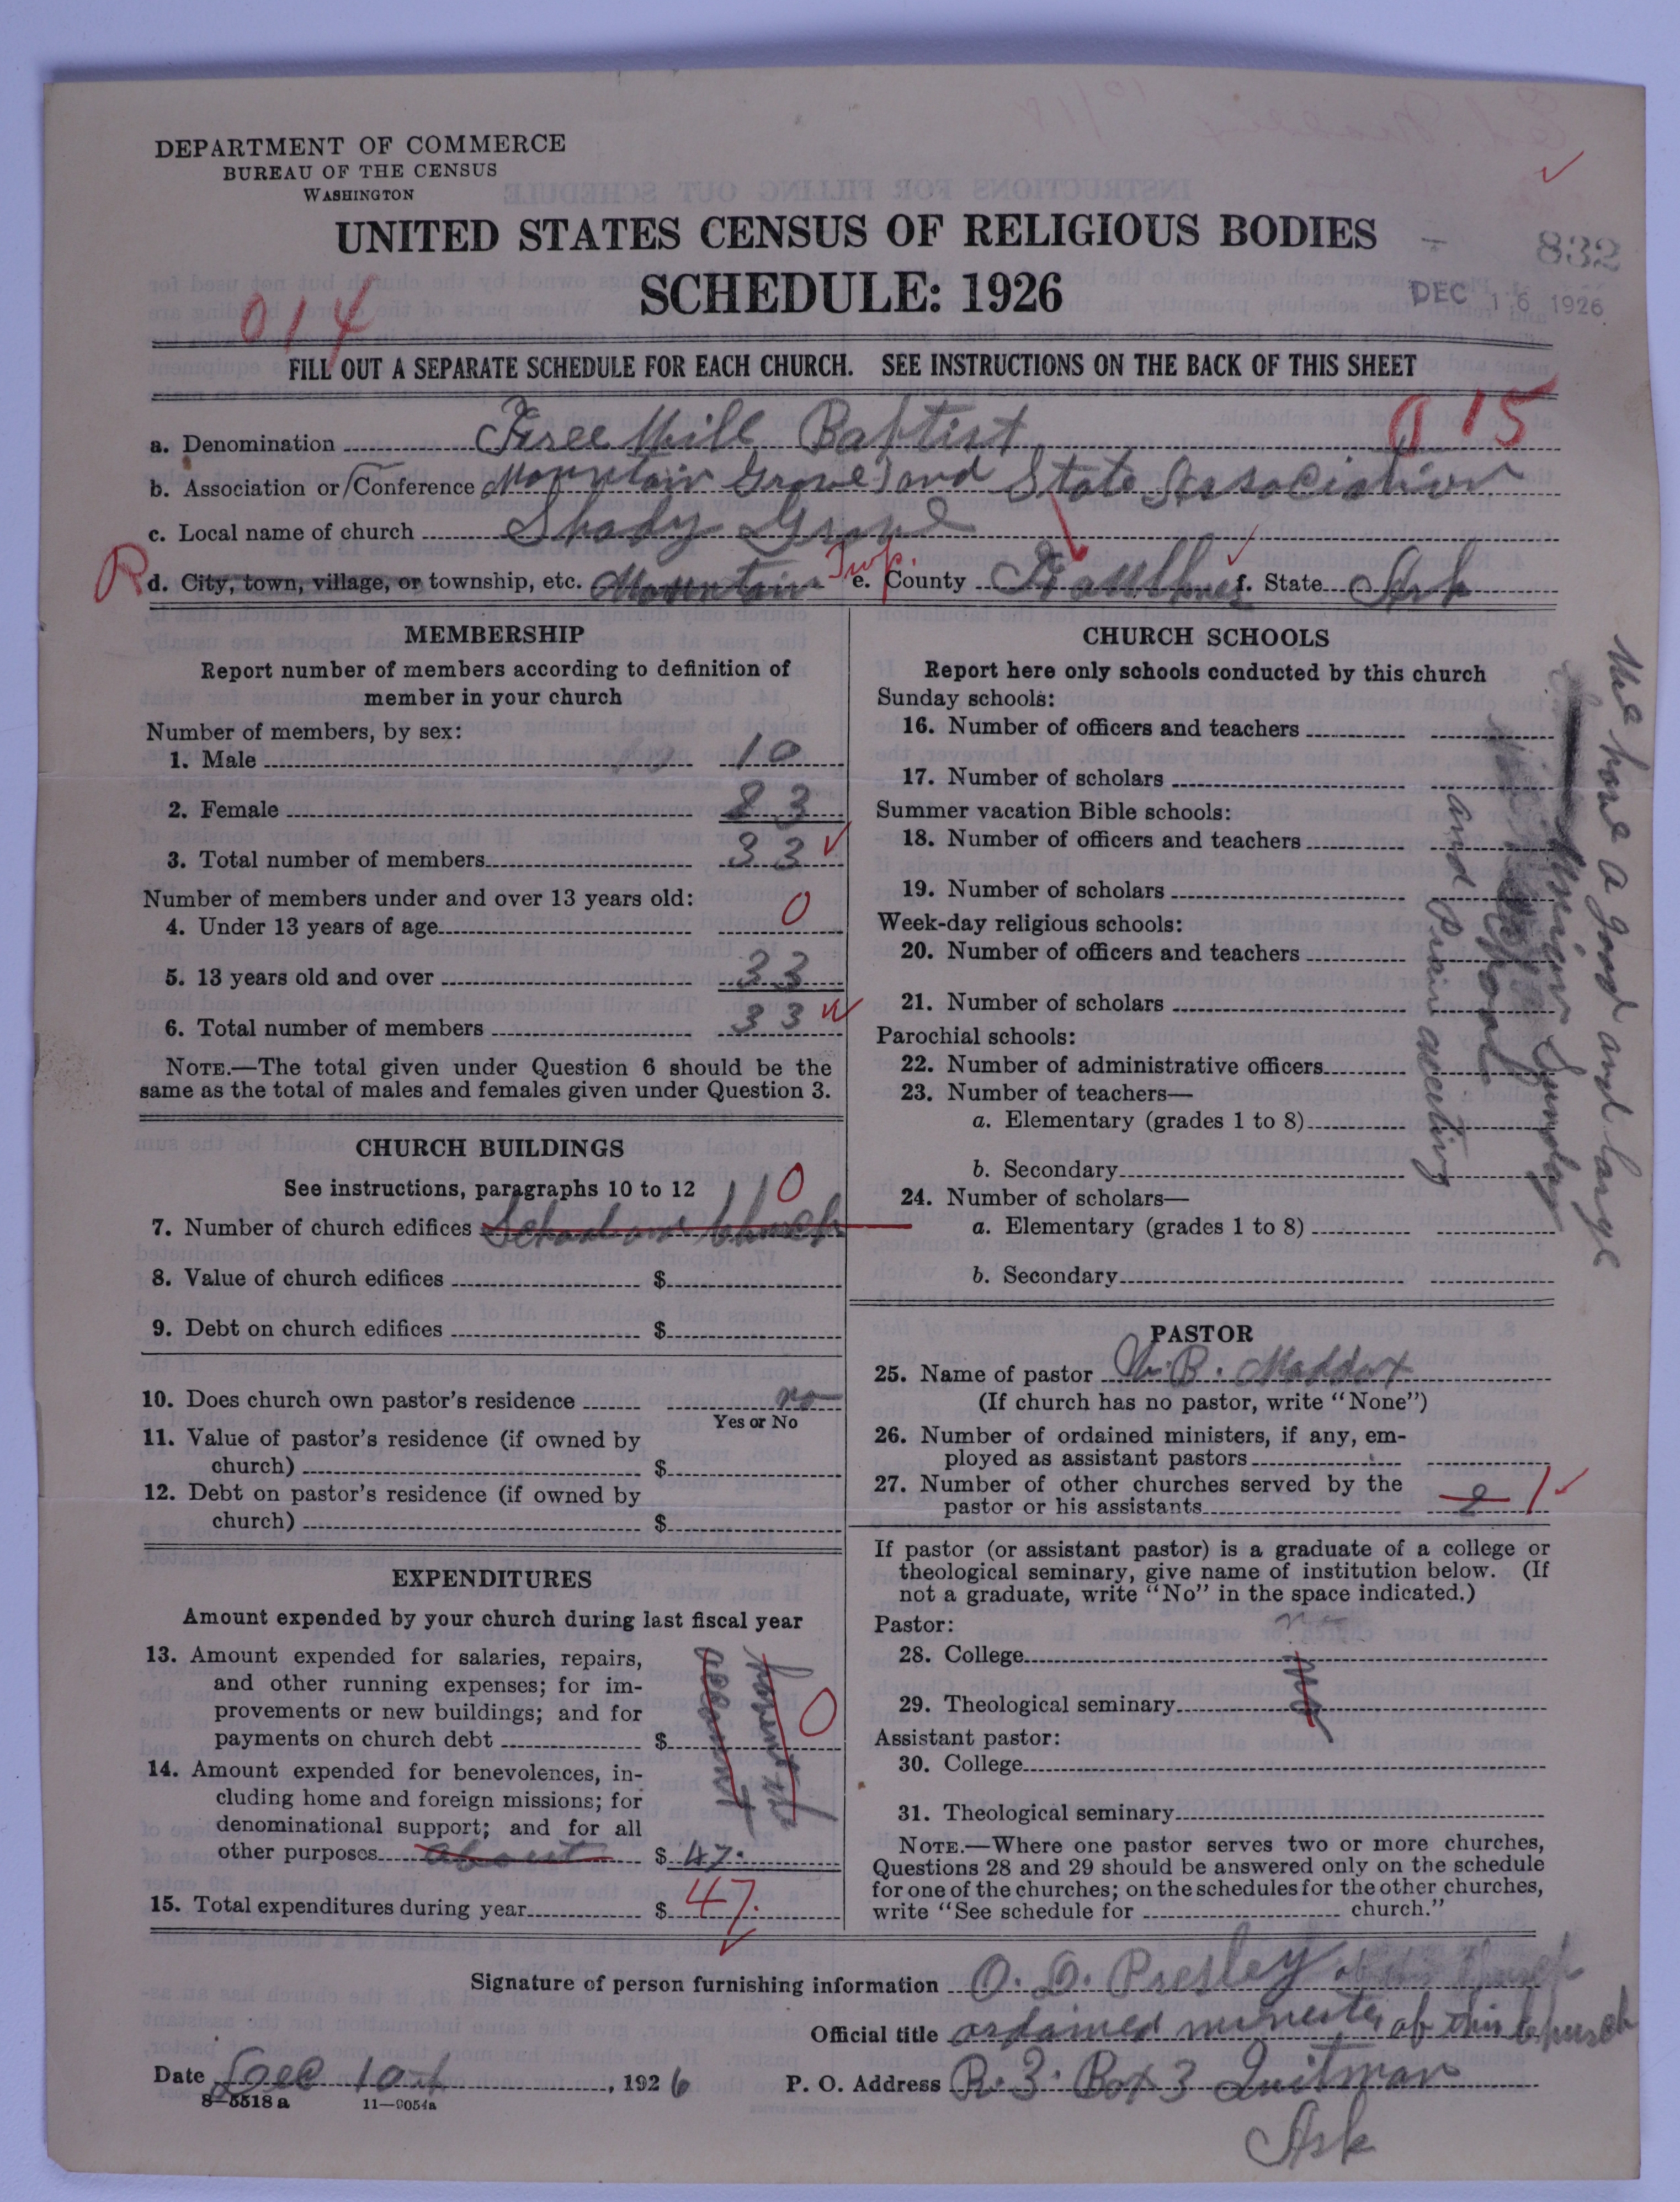 DEPARTMENT OF COMMERCE
BUREAU OF THE CENSUS
WASHINGTON
UNITED STATES CENSUS OF RELIGIOUS BODIES
SCHEDULE: 1926
832
DEC 16 1926
014
FILL OUT A SEPARATE SCHEDULE FOR EACH CHURCH. SEE INSTRUCTIONS ON THE BACK OF THIS SHEET
015
a. Denomination Free Will Baptist
b. Association or Conference Mountain Grove and State Association
c. Local name of church Shady Grove
R d. City, town, village, or township, etc. Mountain Twp. e. County Faulkner f. State Ark
MEMBERSHIP
Report number of members according to definition of
member in your church
Number of members, by sex:
1. Male 10
2. Female 23
3. Total number of members 33
Number of members under and over 13 years old:
4. Under 13 years of age 0
5. 13 years old and over 33
6. Total number of members 33
NOTE.—The total given under Question 6 should be the
same as the total of males and females given under Question 3.
CHURCH BUILDINGS
See instructions, paragraphs 10 to 12
0
7. Number of church edifices
8. Value of church edifices $
9. Debt on church edifices $
10. Does church own pastor's residence no
Yes or No
11. Value of pastor's residence (if owned by
church) $
12. Debt on pastor's residence (if owned by
church) $
EXPENDITURES
Amount expended by your church during last fiscal year
13. Amount expended for salaries, repairs,
and other running expenses; for im-
provements or new buildings; and for
payments on church debt $ 0
14. Amount expended for benevolences, in-
cluding home and foreign missions; for
denominational support; and for all
other purposes about $ 47.
15. Total expenditures during year $ 47.
CHURCH SCHOOLS
Report here only schools conducted by this church
Sunday schools:
16. Number of officers and teachers
17. Number of scholars
Summer vacation Bible schools:
18. Number of officers and teachers
19. Number of scholars
Week-day religious schools:
20. Number of officers and teachers
21. Number of scholars
Parochial schools:
22. Number of administrative officers
23. Number of teachers—
a. Elementary (grades 1 to 8)
b. Secondary
24. Number of scholars—
a. Elementary (grades 1 to 8)
b. Secondary
We have a good and large
Union Sunday
School
and
PASTOR
25. Name of pastor W. B. Maddox
(If church has no pastor, write "None")
26. Number of ordained ministers, if any, em-
ployed as assistant pastors
27. Number of other churches served by the
pastor or his assistants 2 1
If pastor (or assistant pastor) is a graduate of a college or
theological seminary, give name of institution below. (If
not a graduate, write "No" in the space indicated.)
Pastor:
no
28. College
29. Theological seminary
Assistant pastor:
30. College
31. Theological seminary
NOTE.—Where one pastor serves two or more churches,
Questions 28 and 29 should be answered only on the schedule
for one of the churches; on the schedules for the other churches,
write "See schedule for church."
Signature of person furnishing information O. D. Presley
Official title ordained minester of this Church
Date Dec 10, 1926 P. O. Address R. 3. Box 3 Quitman
Ark
8—5518 a 11—9054a